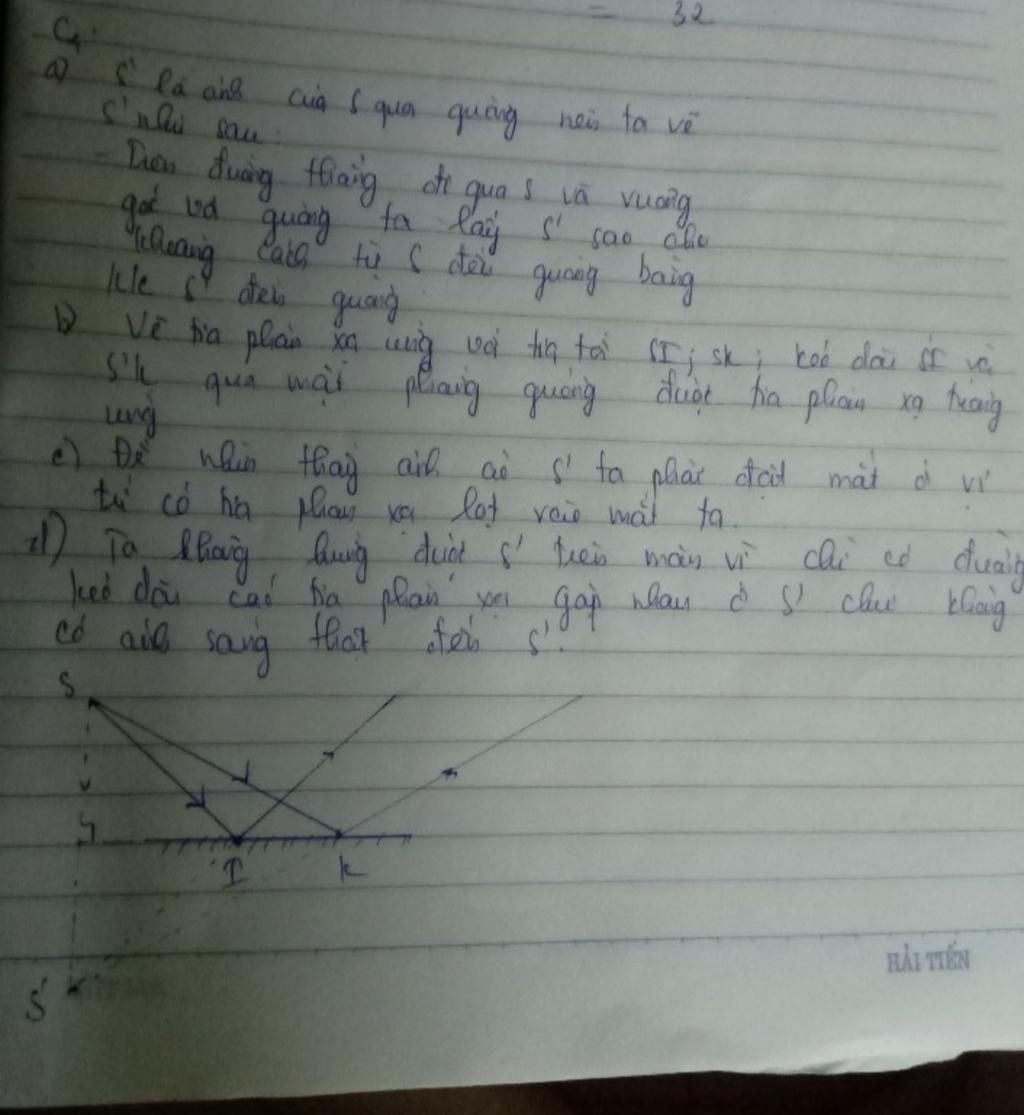 = 32
C4.
a) S' là ảnh của S qua gương nên ta vẽ
S' như sau:
- Trên đường thẳng đi qua S và vuông
góc với gương ta lấy S' sao cho
khoảng cách từ S đến gương bằng
k/c S' đến gương
b) Vẽ tia phản xạ ứng với tia tới SI; SK; kéo dài S'I và
S'K qua mặt phẳng gương được tia phản xạ tương
ứng
c) Để nhìn thấy ảnh ảo S' ta phải đặt mắt ở vị
trí có tia phản xạ lọt vào mắt ta.
d) Ta không hứng được S' trên màn vì chỉ có đường
kéo dài các tia phản xạ gặp nhau ở S' chứ không
có ánh sáng thật đến S'.
S
I K
HẢI TIẾN
S'